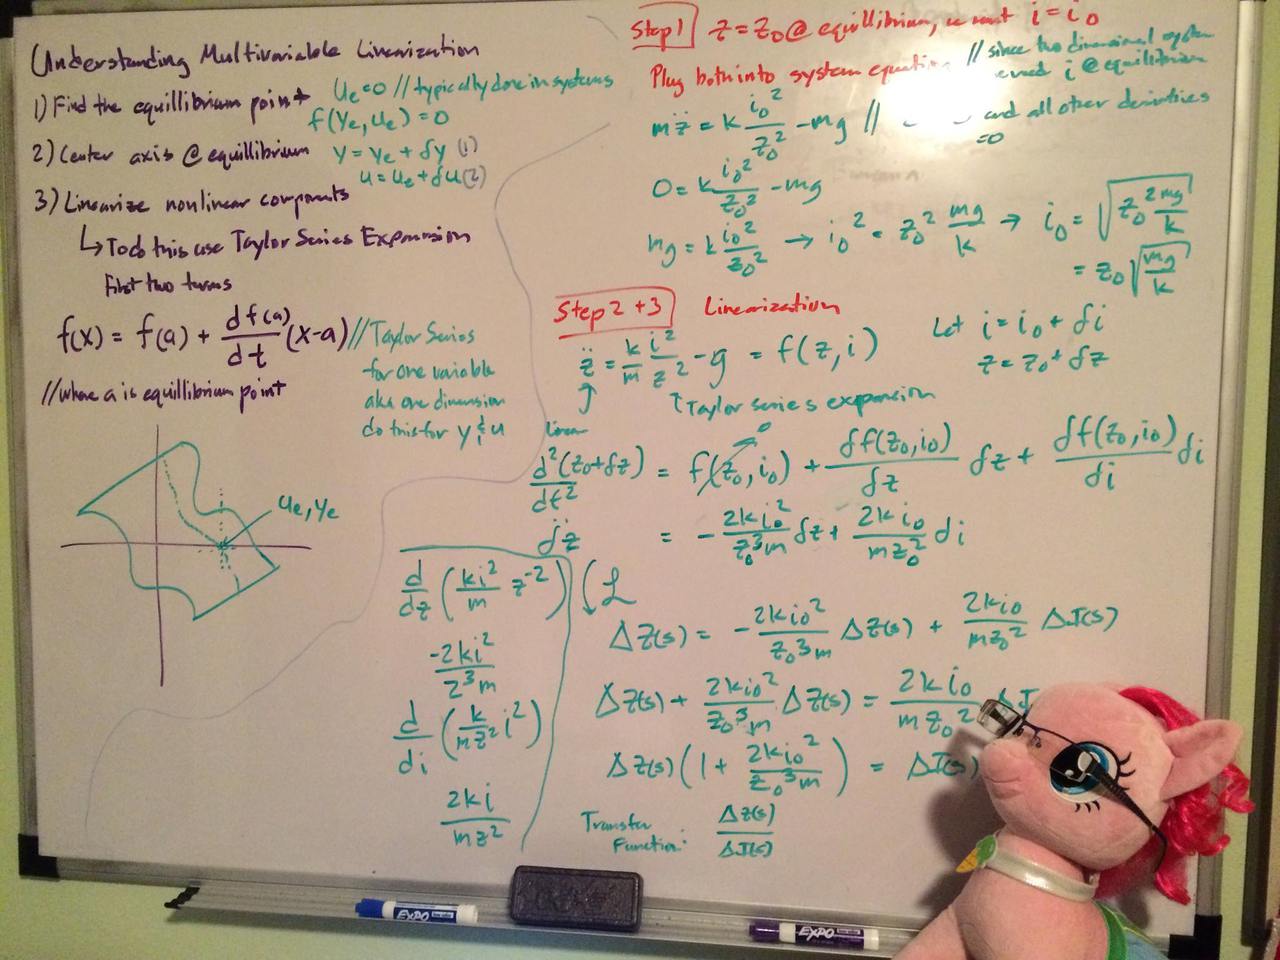 Understanding Multivariable Linearization
1) Find the equillibrium point
u_e = 0 // typically done in systems
f(y_e, u_e) = 0
2) Center axis @ equillibrium
y = y_e + δy (1)
u = u_e + δu (2)
3) Linearize nonlinear components
↳ To do this use Taylor Series Expansion
First two terms
f(x) = f(a) + df(a)/dt (x-a) // Taylor Series
for one variable
aka one dimension
do this for y & u
// where a is equillibrium point
u_e, y_e
Step 1 z = z_0 @ equillibrium, we want i = i_0
Plug both into system equation // since two dimensional system
i @ equillibrium
m z̈ = k i_0²/z_0² - mg // and all other derivatives
=0
0 = k i_0²/z_0² - mg
mg = k i_0²/z_0² → i_0² = z_0² mg/k → i_0 = √(z_0² mg/k)
= z_0 √(mg/k)
Step 2 + 3 Linearization
Let i = i_0 + δi
z = z_0 + δz
z̈ = k/m i²/z² - g = f(z, i)
↑Taylor series expansion
linear
d²(z_0+δz)/dt² = f(z_0, i_0) + δf(z_0, i_0)/δz δz + δf(z_0, i_0)/di δi
0
δz̈ = - 2k i_0²/z_0³m δz + 2k i_0/m z_0² di
d/dz (k i²/m z^-2)
-2k i²/z³m
d/di (k/m z² i²)
2k i/m z²
ℒ
ΔZ(s) = - 2k i_0²/z_0³m ΔZ(s) + 2k i_0/m z_0² ΔI(s)
ΔZ(s) + 2k i_0²/z_0³m ΔZ(s) = 2k i_0/m z_0² ΔI
ΔZ(s) (1 + 2k i_0²/z_0³m) = ΔI(s)
Transfer
Function: ΔZ(s)/ΔI(s)
EXPO
EXPO